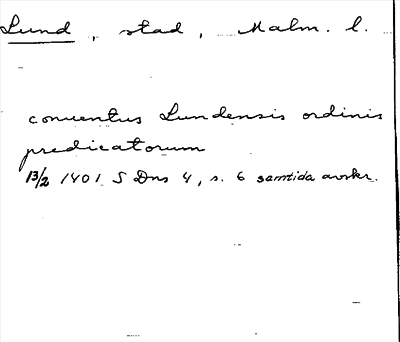 Lund, stad, Malm. l.
conuentus Lundensis ordinis
predicatorum
13/2 1401 S Dns 4, s. 6 samtida avskr.